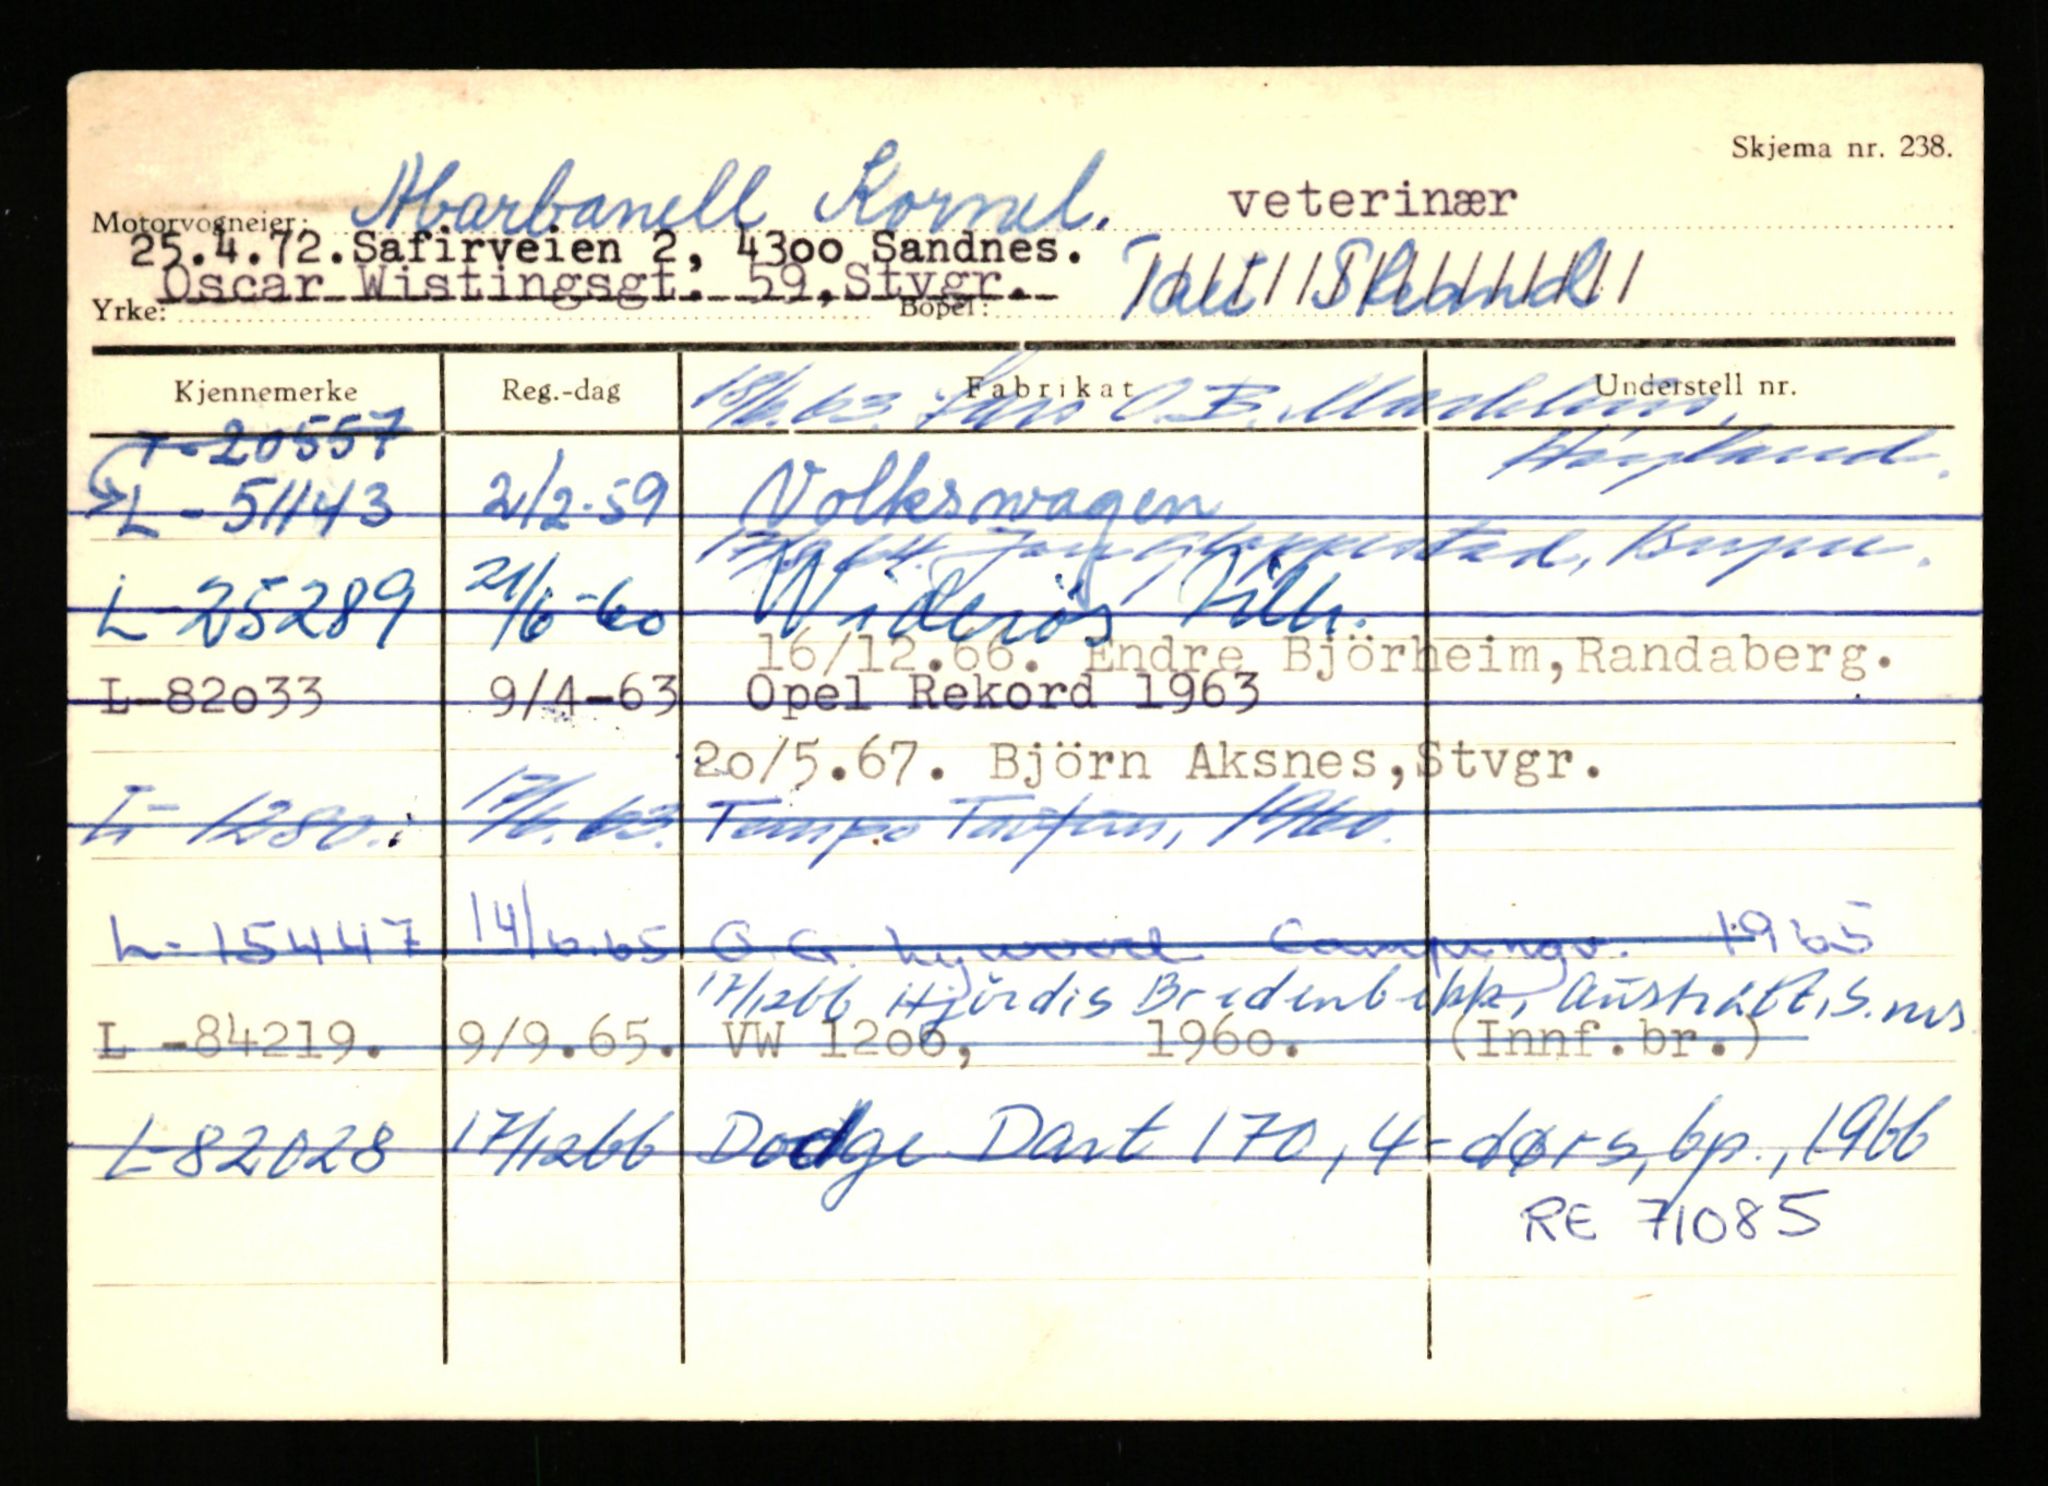 Skjema nr. 238.
Motorvogneier: Abarbanell Kornel. veterinær
25.4.72.Safirveien 2, 4300 Sandnes.
Oscar Wistingsgt. 59,Stvgr.
Yrke: Bopel: Tau Strand
Kjennemerke Reg.-dag Fabrikat Understell nr.
18/6.63. Lars O. B.
T-20557 Høyland.
L-51143 21/2-59 Volkswagen
L-25289 21/6-60 Widerøs Tilh.
16/12.66. Endre Björheim,Randaberg.
L-82033 9/4-63 Opel Rekord 1963
20/5.67. Björn Aksnes,Stvgr.
L-1280. 17/6.63. Tempo 1960.
L-15447 14/6.65 Campingv. 1965
17/1266 Hjördis Bredenbekk, Austrått, S.nes
L -84219. 9/9.65. VW 1200, 1960. (Innf.br.)
L-82028 17/1266 Dodge Dart 170, 4-dørs, bp., 1966
RE 71085